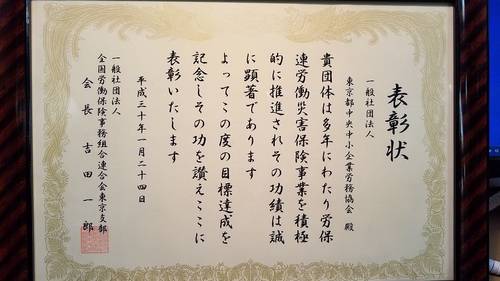 表彰状
一般社団法人
東京都中央中小企業労務協会 殿
貴団体は多年にわたり労保
連労働災害保険事業を積極
的に推進されその功績は誠
に顕著であります
よってこの度の目標達成を
記念しその功を讃えここに
表彰いたします
平成三十年一月二十四日
一般社団法人
全国労働保険事務組合連合会東京支部
会長 吉田一郎